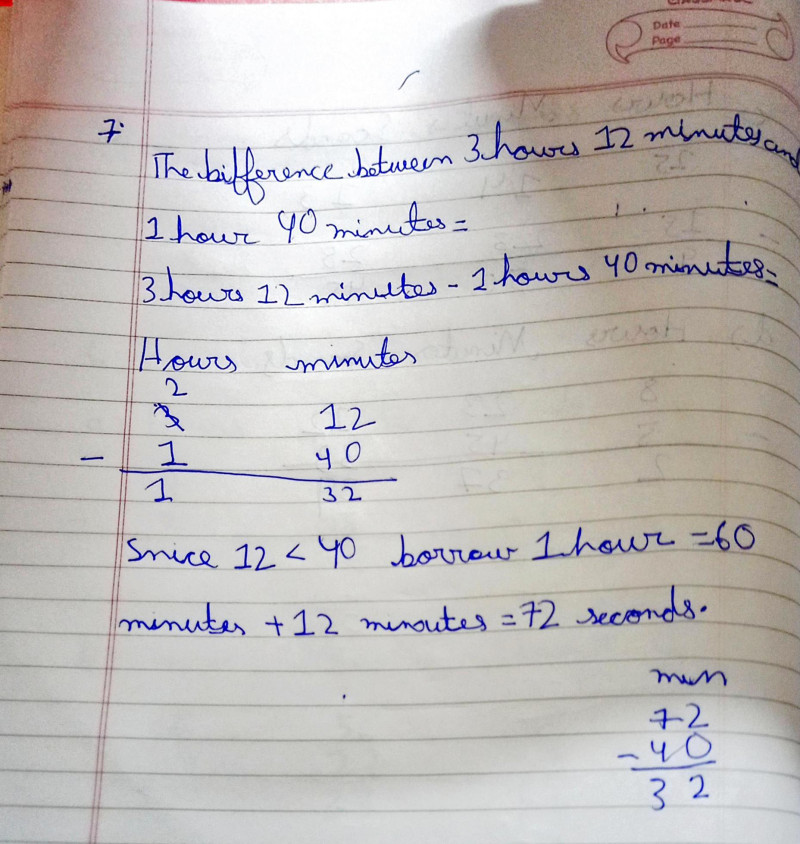 Date
Page
7.
The bifference between 3 hours 12 minutes and
1 hour 40 minutes =
3 hours 12 minutes - 1 hours 40 minutes =
Hours minutes
2
3 12
- 1 40
1 32
Snice 12 < 40 borrow 1 hour = 60
minutes + 12 minoutes = 72 seconds.
mun
72
- 40
32